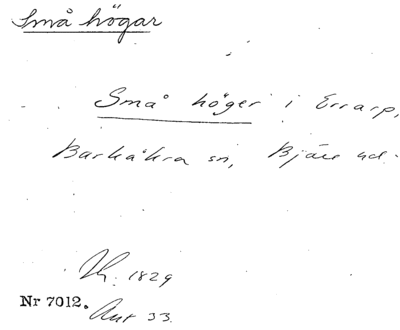 Små högar
Små höger i Errarp,
Barkåkra sn, Bjäre hd.
Th. 1829
Nr 7012.
Ant 33.